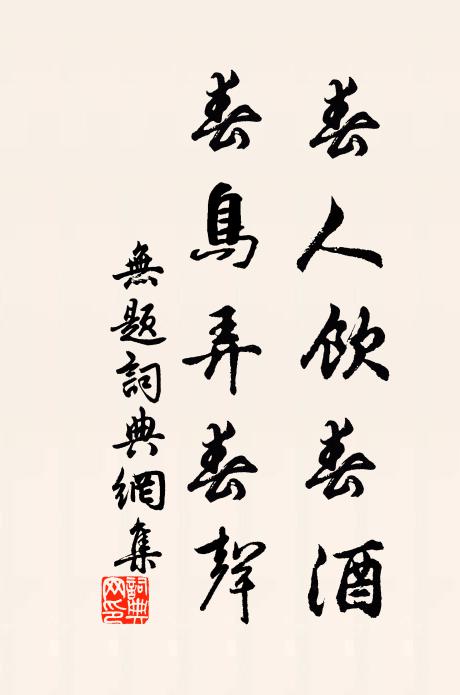 春人飲春酒
春鳥弄春聲
無題詞典網集
詞典網印